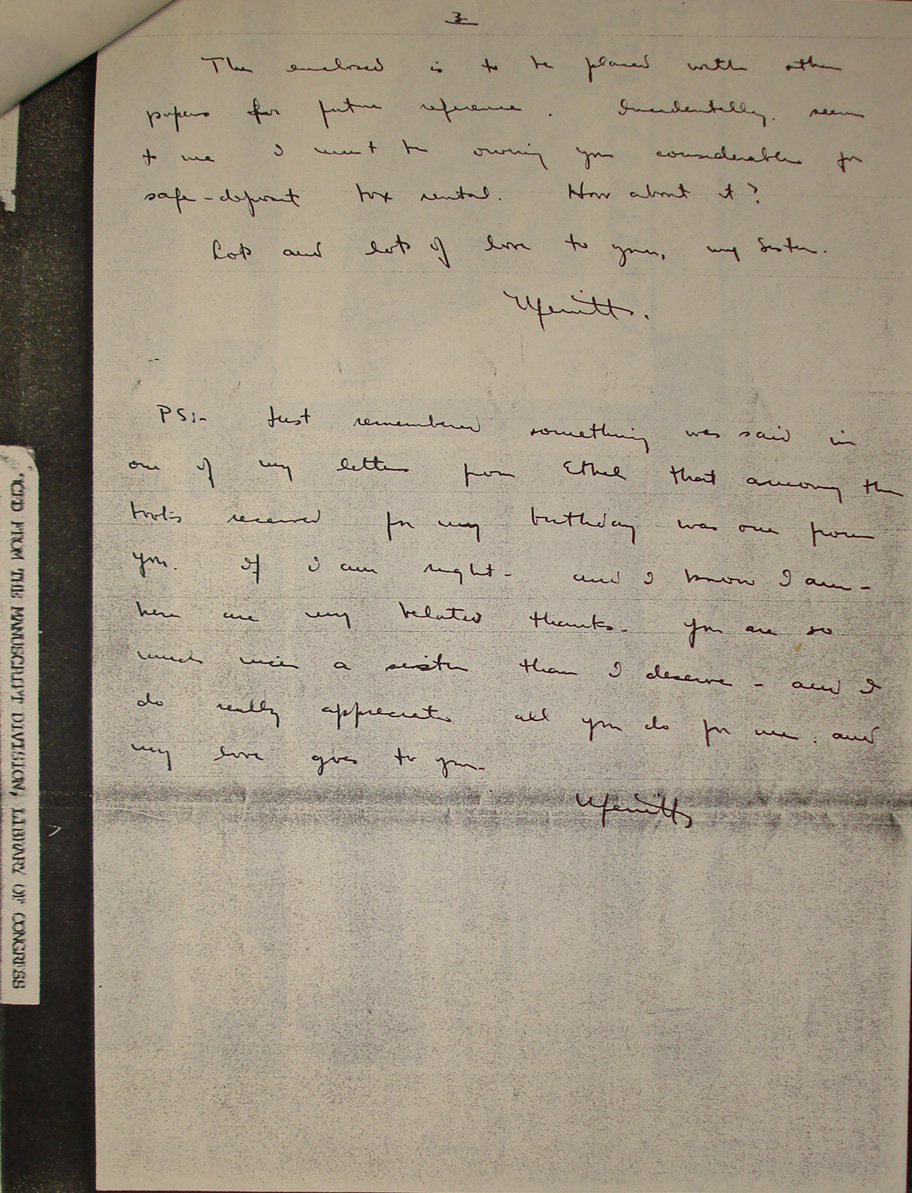 3
The enclosed is to be placed with other
papers for future reference. Incidentally, seems
to me I must be owing you considerable for
safe-deposit box rental. How about it?
Lots and lots of love to you, my Sister.
Merritts.
PS:- Just remembered something was said in
one of my letters from Ethel that among the
books received for my birthday was one from
you. If I am right - and I know I am -
here are my belated thanks. You are so
much nicer a sister than I deserve - and I
do really appreciate all you do for me. and
my love goes to you.
Merritts
'CED FROM THE MANUSCRIPT DIVISION, LIBRARY OF CONGRESS